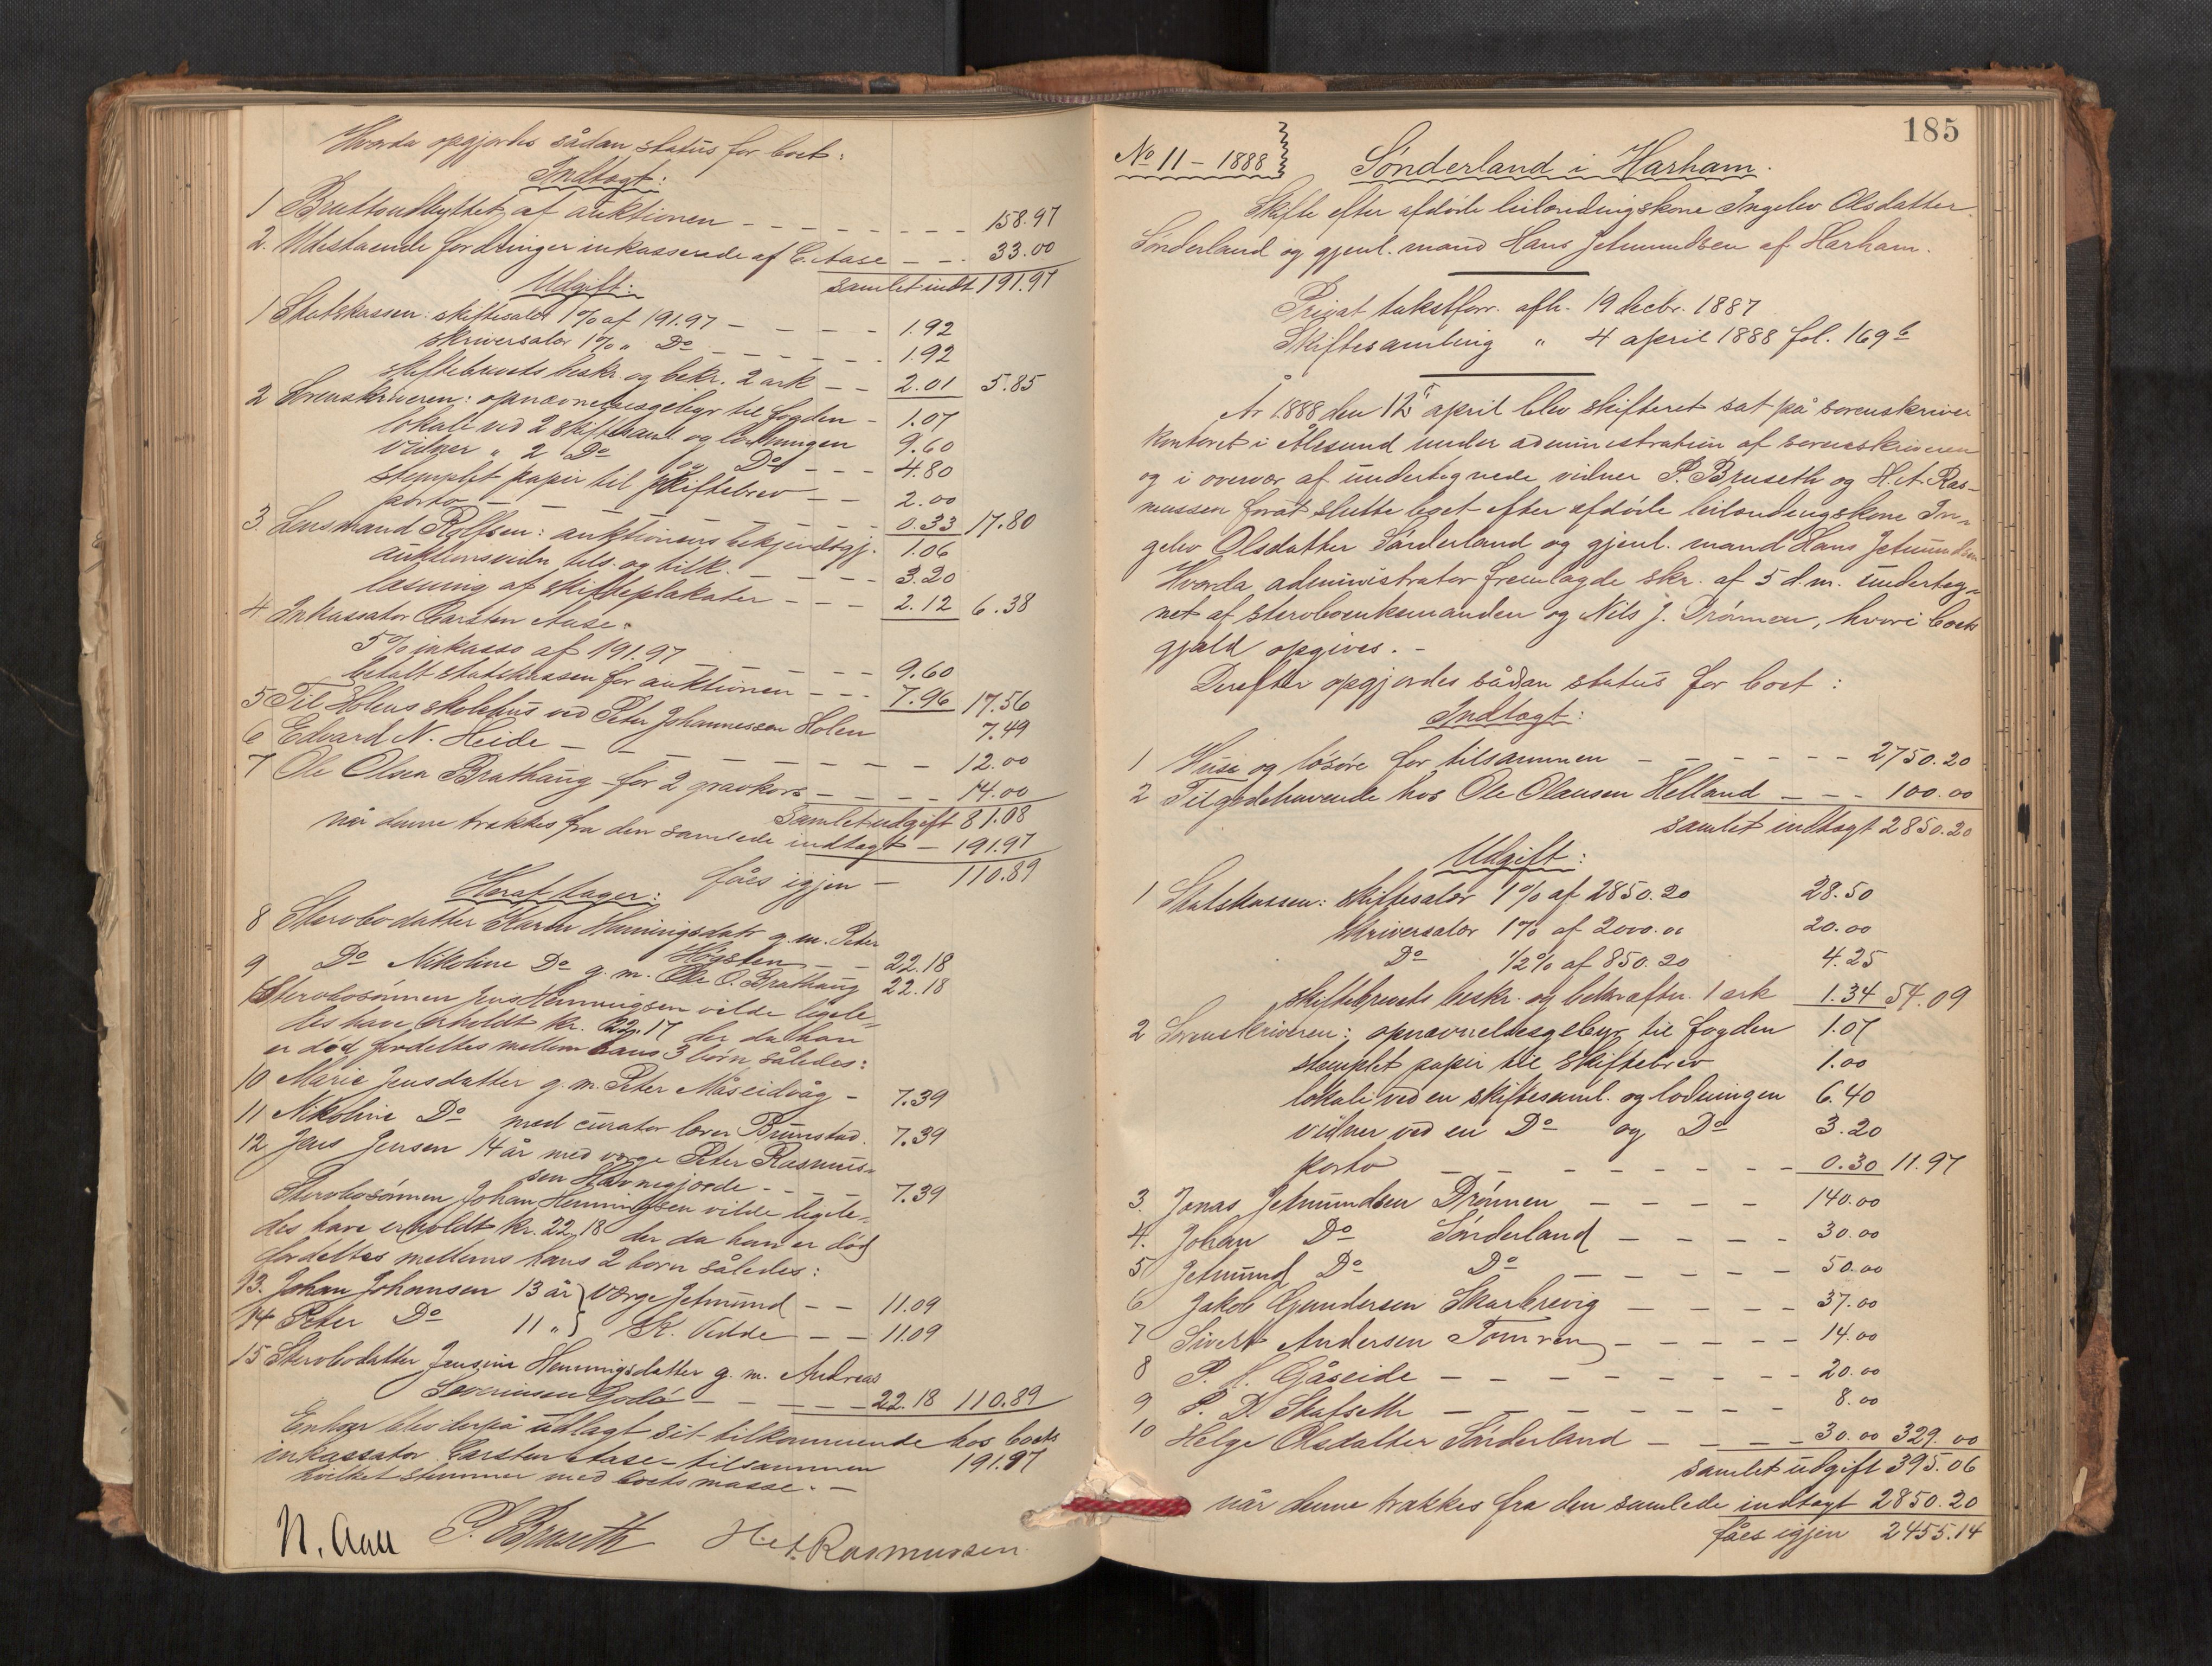 Hvorda opgjordes sådan status for boet:
Indtægt:
1 Bruttoudbyttet af auktionen — — — — — — — — 158.97
2. Udestaaende fordringer inkasserede af C. Aase — — 33.00
samlet indt 191.97
Udgift:
1 Statskassen: skiftesalær 1% af 191.97 — — — — — 1.92
skriversalær 1% „ Do — — — — — — 1.92
skiftebrevets beskr. og bekr. 2 ark — — 2.01 5.85
2 Sorenskriveren: opnævnelsesgebyr til fogden — 1.07
lokale ved 2 skiftesaml. og lodningen 9.60
vidner „ 2 Do og Do — — — 4.80
stemplet papir til skiftebrev — — 2.00
porto — — — — — — — — 0.33 17.80
3. Lensmand Rolfsen: auktionens bekjendtgj. 1.06
auktionsvidn. tils. og tilk. — — — — 3.20
læsning af skifteplakater — — — 2.12 6.38
4 Inkassator Carsten Aase:
5% inkasso af 191.97 — — — — — 9.60
betalt statskassen for auktionen — — — 7.96 17.56
5 Til Holens skolehus ved Peter Johannessen Holen 7.49
6 Edvard N. Heide — — — — — — — — — 12.00
7 Ole Olsen Brathaug for 2 gravkors — — — — 14.00
Samlet udgift 81.08
når denne trækkes fra den samlede indtægt — 191.97
fåes igjen — 110.89
Heraf tager:
8 Stervbodatter Karen Henningsdatr g. m. Peter
Høgsten — — 22.18
9 Do Nikoline Do g. m. Ole O. Brathaug 22.18
Stervbosønnen Jens Henningsen vilde ligele-
des have erholdt kr. 22.17 der da han
er død fordeltes mellem hans 3 børn således:
10 Marie Jensdatter g. m. Peter Måseidvåg — 7.39
11 Nikoline Do med curator lærer Brunstad. 7.39
12 Jens Jensen 14 år med værge Peter Rasmus-
sen Havnegjærde — — — 7.39
Stervbosønnen Johan Henningsen vilde ligele-
des have erholdt kr. 22.18 der da han er død
fordeltes mellem hans 2 børn således:
13. Johan Johansen 13 år } Værge Jetmund — — 11.09
14 Peter Do 11 „ } K. Vedde — — 11.09
15 Stervbodatter Jensine Henningsdatter g. m. Andreas
Severinsen Godø — — — — — 22.18 110.89
Enhver blev derpå udlagt sit tilkommende hos boets
inkassator Carsten Aase — tilsammen 191.97
hvilket stemmer med boets masse. —
N. Aall P. Bruseth H. A. Rasmussen
185
No 11 – 1888 } Sønderland i Harham.
Skifte efter afdøde leilændingskone Ingelev Olsdatter
Sønderland og gjenl. mand Hans Jetmundsen af Harham.
Privat takstforr. afh. 19 decbr. 1887
Skiftesamling „ 4 april 1888 fol. 169 b
År 1888 den 12t april blev skifteret sat på sorenskriver
kontoret i Ålesund under administration af sorenskriveren
og i overvær af undertegnede vidner P. Bruseth og H. A. Ras-
mussen forat slutte boet efter afdøde leilændingskone In-
gelev Olsdatter Sønderland og gjenl. mand Hans Jetmundsen
Hvorda administrator fremlagde skr. af 5 d.m. underteg-
net af stervboenkemanden og Nils J. Drønnen, hvori boets
gjæld opgives. —
Derefter opgjordes sådan status for boet:
Indtægt:
1 Huse og løsøre for tilsammen — — — — — — 2750.20
2 Tilgodehavende hos Ole Olausen Helland — — — 100.00
samlet indtægt 2850.20
Udgift:
1 Statskassen: skiftesalær 1% af 2850.20 28.50
skriversalær 1% af 2000.00 20.00
Do 1/2% af 850.20 4.25
skiftebrevets beskr. og bekræftn. 1 ark 1.34 54.09
2 Sorenskriveren: opnævnelsesgebyr til fogden 1.07
stemplet papir til skiftebrev 1.00
lokale ved en skiftesaml. og lodningen 6.40
vidner ved en Do og Do 3.20
porto — — — — — — — 0.30 11.97
3. Jonas Jetmundsen Drønnen — — — — 140.00
4. Johan Do Sønderland — — — — 30.00
5 Jetmund Do Do — — — — 50.00
6 Jakob Gundersen Skarbrevig — — — — 37.00
7 Sivert Andersen Tomren — — — — — 14.00
8 P. H. Gåseide — — — — — — — — 20.00
9 P. D. Skafseth — — — — — — — 8.00
10 Helge Olsdatter Sønderland — — — — 30.00 329.00
samlet udgift 395.06
når denne trækkes fra den samlede indtægt 2850.20
fåes igjen 2455.14